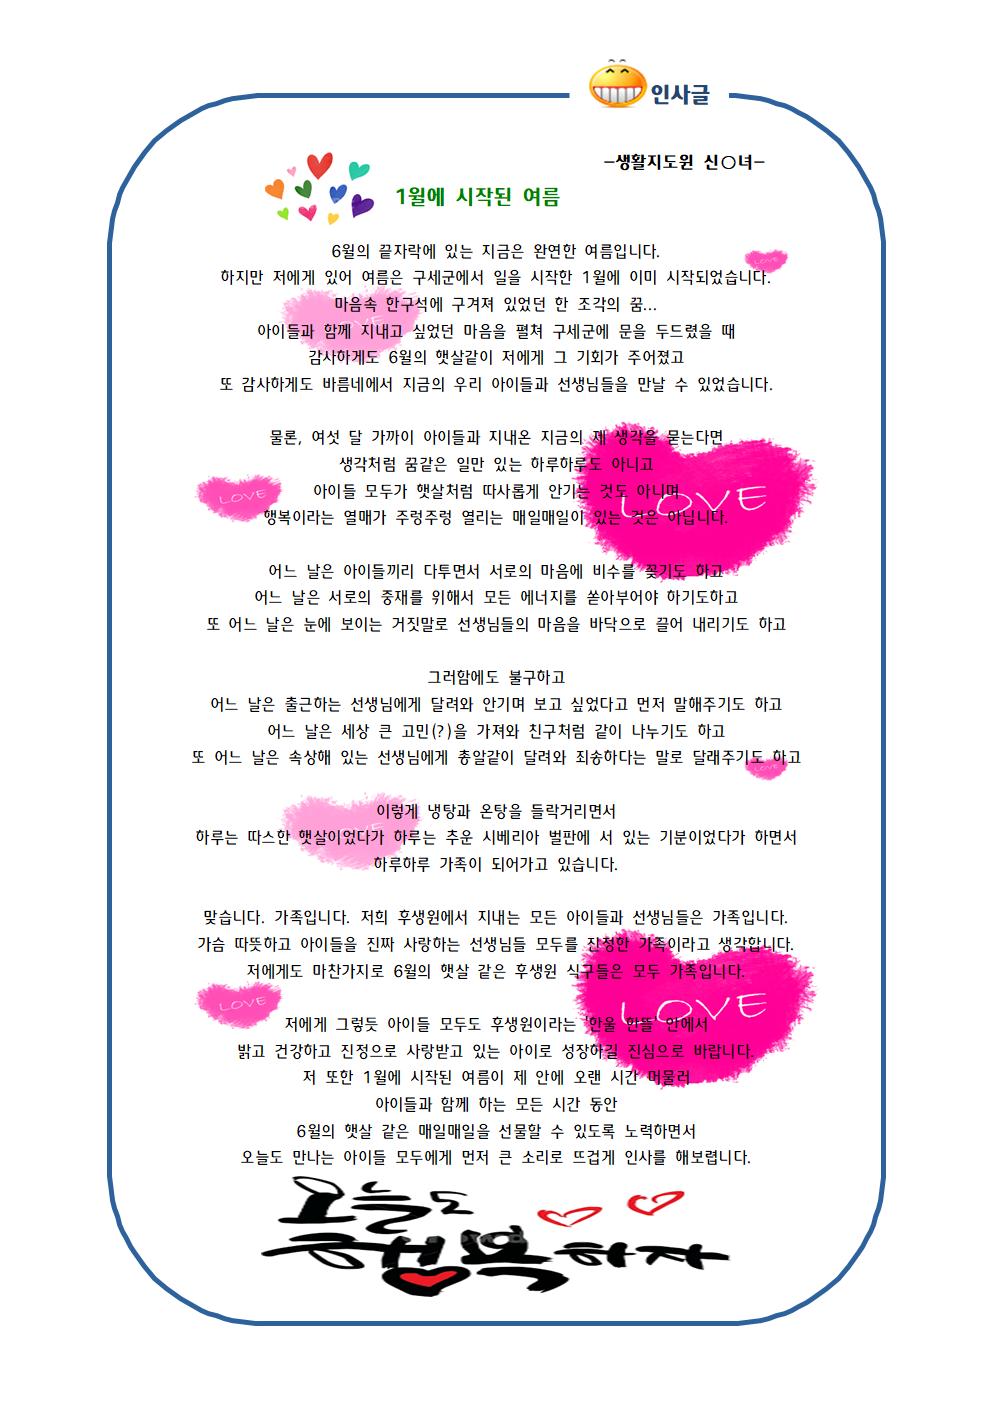 인사글
-생활지도원 신○녀-
1월에 시작된 여름
6월의 끝자락에 있는 지금은 완연한 여름입니다.
하지만 저에게 있어 여름은 구세군에서 일을 시작한 1월에 이미 시작되었습니다.
마음속 한구석에 구겨져 있었던 한 조각의 꿈...
아이들과 함께 지내고 싶었던 마음을 펼쳐 구세군에 문을 두드렸을 때
감사하게도 6월의 햇살같이 저에게 그 기회가 주어졌고
또 감사하게도 바름네에서 지금의 우리 아이들과 선생님들을 만날 수 있었습니다.
물론, 여섯 달 가까이 아이들과 지내온 지금의 제 생각을 묻는다면
생각처럼 꿈같은 일만 있는 하루하루도 아니고
아이들 모두가 햇살처럼 따사롭게 안기는 것도 아니며
행복이라는 열매가 주렁주렁 열리는 매일매일이 있는 것은 아닙니다.
어느 날은 아이들끼리 다투면서 서로의 마음에 비수를 꽂기도 하고
어느 날은 서로의 중재를 위해서 모든 에너지를 쏟아부어야 하기도하고
또 어느 날은 눈에 보이는 거짓말로 선생님들의 마음을 바닥으로 끌어 내리기도 하고
그러함에도 불구하고
어느 날은 출근하는 선생님에게 달려와 안기며 보고 싶었다고 먼저 말해주기도 하고
어느 날은 세상 큰 고민(?)을 가져와 친구처럼 같이 나누기도 하고
또 어느 날은 속상해 있는 선생님에게 총알같이 달려와 죄송하다는 말로 달래주기도 하고
이렇게 냉탕과 온탕을 들락거리면서
하루는 따스한 햇살이었다가 하루는 추운 시베리아 벌판에 서 있는 기분이었다가 하면서
하루하루 가족이 되어가고 있습니다.
맞습니다. 가족입니다. 저희 후생원에서 지내는 모든 아이들과 선생님들은 가족입니다.
가슴 따뜻하고 아이들을 진짜 사랑하는 선생님들 모두를 진정한 가족이라고 생각합니다.
저에게도 마찬가지로 6월의 햇살 같은 후생원 식구들은 모두 가족입니다.
저에게 그렇듯 아이들 모두도 후생원이라는 '한울 한뜰' 안에서
밝고 건강하고 진정으로 사랑받고 있는 아이로 성장하길 진심으로 바랍니다.
저 또한 1월에 시작된 여름이 제 안에 오랜 시간 머물러
아이들과 함께 하는 모든 시간 동안
6월의 햇살 같은 매일매일을 선물할 수 있도록 노력하면서
오늘도 만나는 아이들 모두에게 먼저 큰 소리로 뜨겁게 인사를 해보렵니다.
오늘도
행복하자
LOVE
LOVE
LOVE
LOVE
LOVE
LOVE
LOVE
LOVE